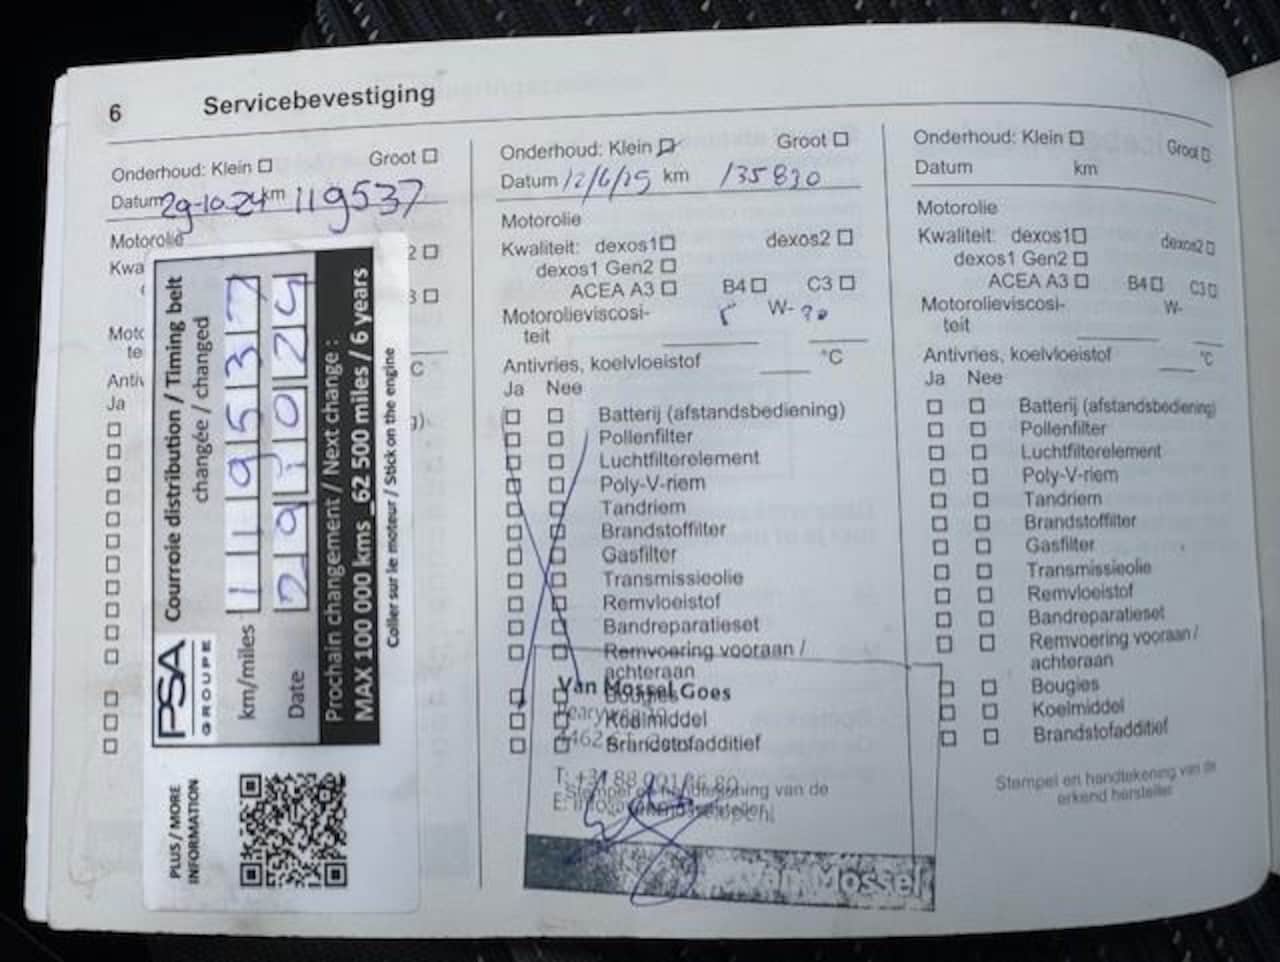 6 Servicebevestiging
Onderhoud: Klein ☐ Groot ☐
Datum 29-10-24 km 119537
Motorolie
Kwa
2 ☐
3 ☐
Moto
te
°C
Antiv
Ja
PSA
GROUPE
Courroie distribution / Timing belt
changée / changed
km/miles 119537
Date 29 10 24
Prochain changement / Next change :
MAX 100 000 kms _ 62 500 miles / 6 years
Coller sur le moteur / Stick on the engine
PLUS / MORE
INFORMATION
Onderhoud: Klein ☐ Groot ☐
Datum 12/6/25 km 135830
Motorolie
Kwaliteit: dexos1 ☐ dexos2 ☐
dexos1 Gen2 ☐
ACEA A3 ☐ B4 ☐ C3 ☐
Motorolieviscosi- W-
teit
Antivries, koelvloeistof °C
Ja Nee
☐ ☐ Batterij (afstandsbediening)
☐ ☐ Pollenfilter
☐ ☐ Luchtfilterelement
☐ ☐ Poly-V-riem
☐ ☐ Tandriem
☐ ☐ Brandstoffilter
☐ ☐ Gasfilter
☐ ☐ Transmissieolie
☐ ☐ Remvloeistof
☐ ☐ Bandreparatieset
☐ ☐ Remvoering vooraan /
achteraan
☐ ☐ Bougies
☐ ☐ Koelmiddel
☐ ☐ Brandstofadditief
Stempel en handtekening van de
erkend hersteller
Van Mossel Goes
T: +31 88 001
E: info
van Mossel
Onderhoud: Klein ☐ Groot ☐
Datum km
Motorolie
Kwaliteit: dexos1 ☐ dexos2 ☐
dexos1 Gen2 ☐
ACEA A3 ☐ B4 ☐ C3 ☐
Motorolieviscosi- W-
teit
Antivries, koelvloeistof °C
Ja Nee
☐ ☐ Batterij (afstandsbediening)
☐ ☐ Pollenfilter
☐ ☐ Luchtfilterelement
☐ ☐ Poly-V-riem
☐ ☐ Tandriem
☐ ☐ Brandstoffilter
☐ ☐ Gasfilter
☐ ☐ Transmissieolie
☐ ☐ Remvloeistof
☐ ☐ Bandreparatieset
☐ ☐ Remvoering vooraan /
achteraan
☐ ☐ Bougies
☐ ☐ Koelmiddel
☐ ☐ Brandstofadditief
Stempel en handtekening van de
erkend hersteller